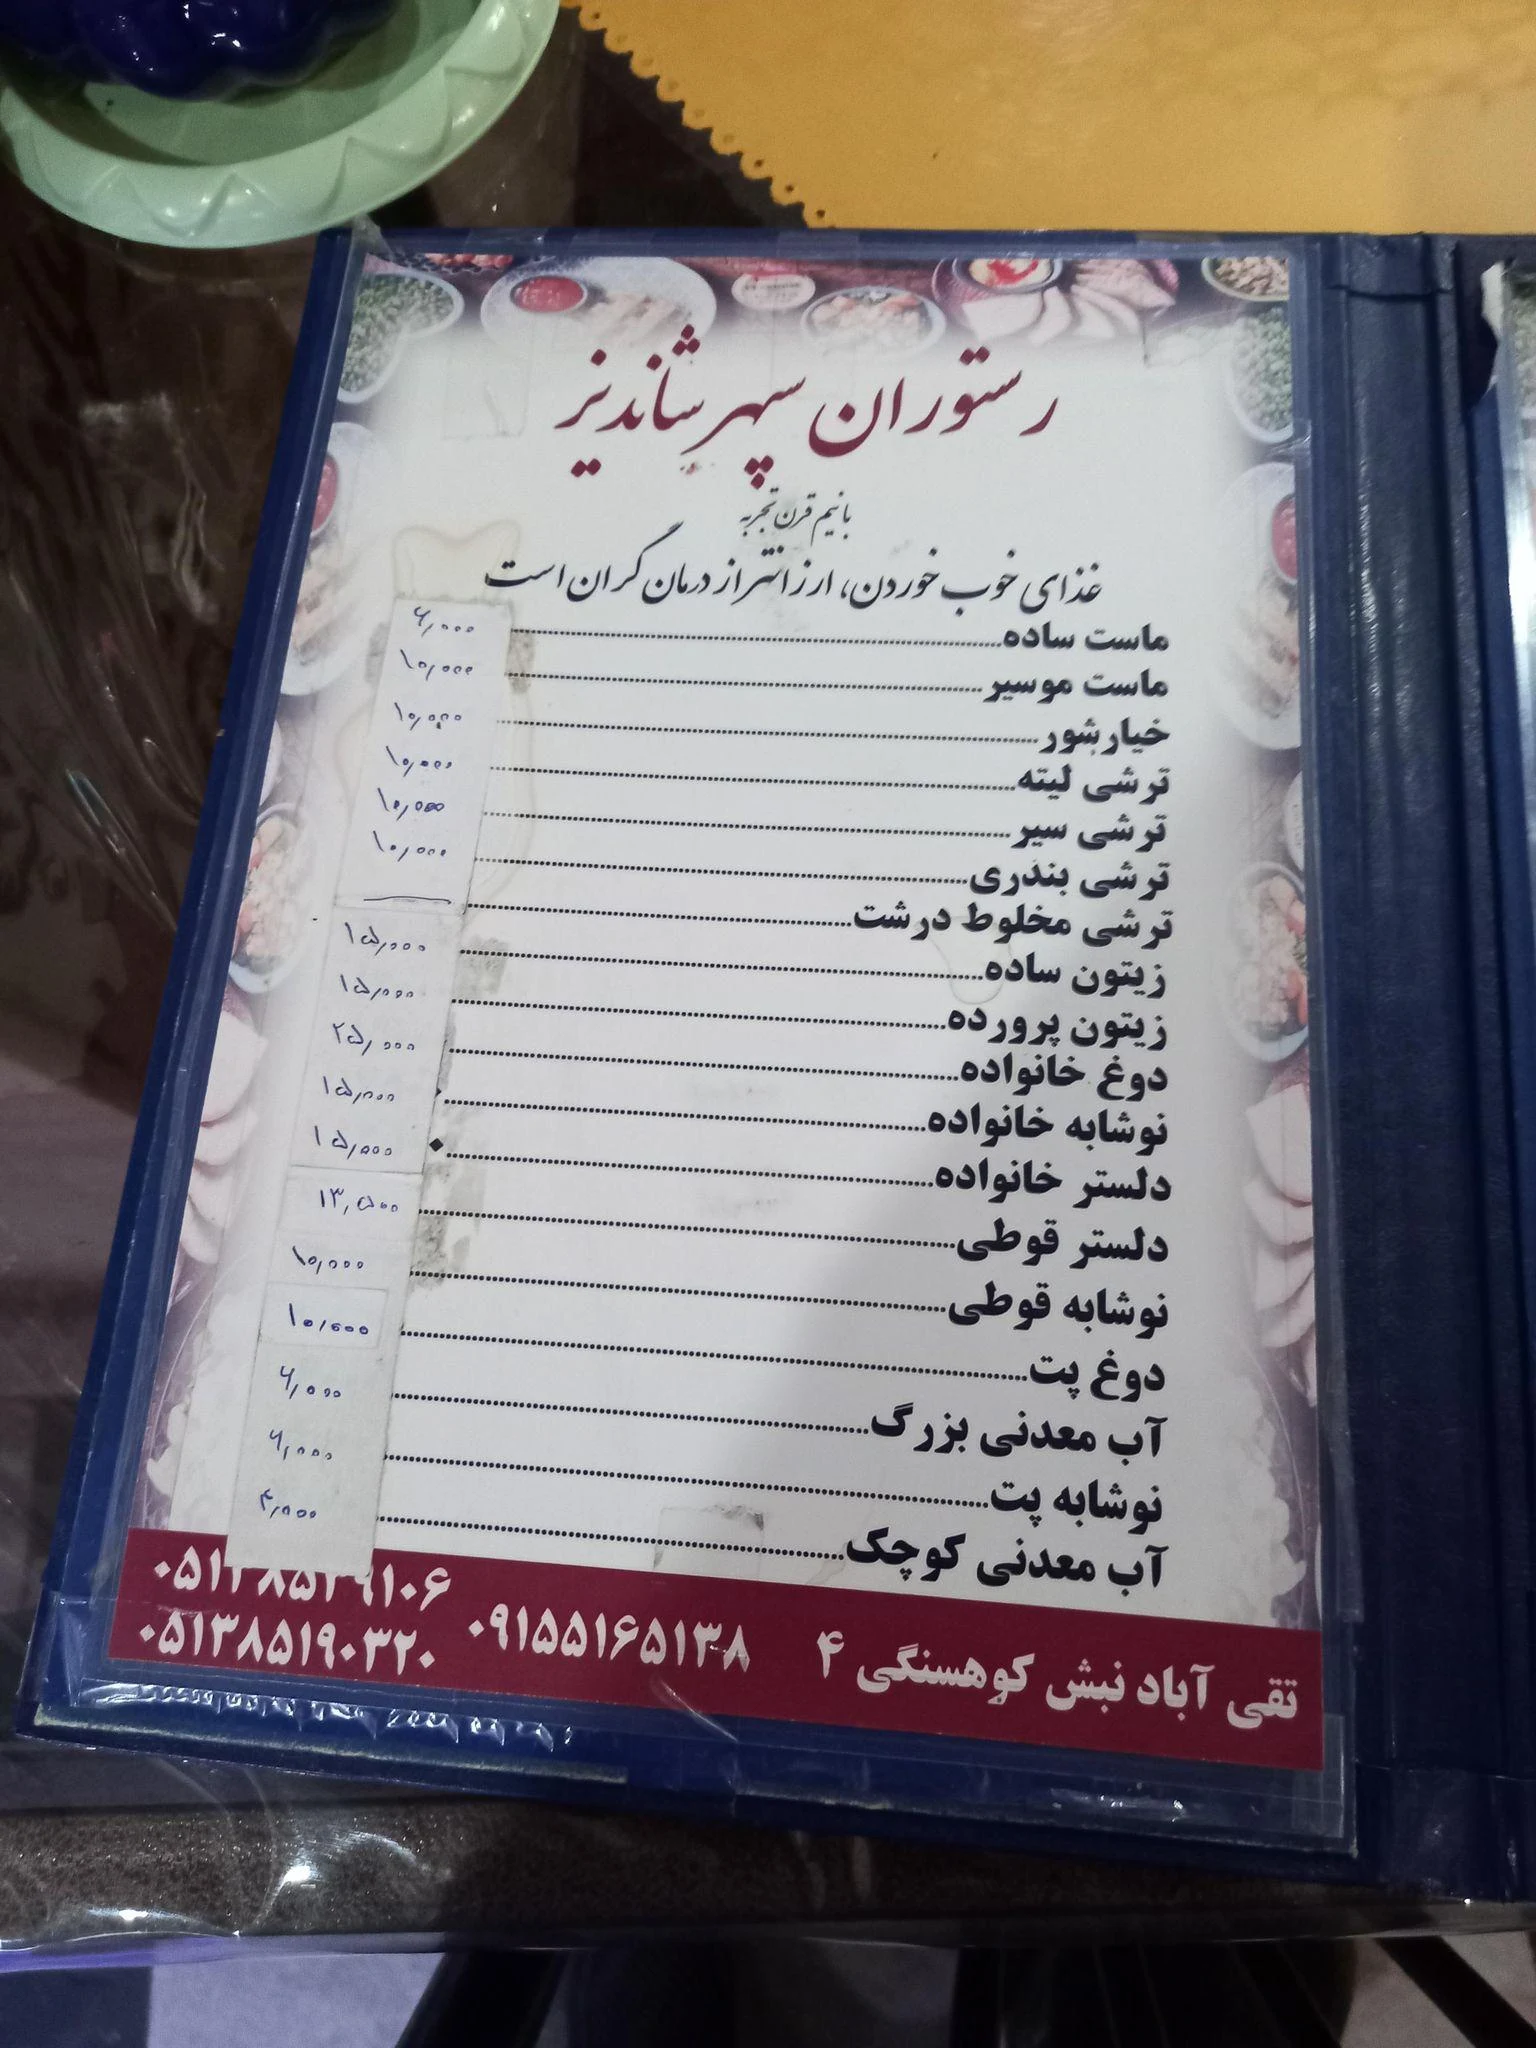 رستوران سپهر شاندیز
با نیم قرن تجربه
غذای خوب خوردن، ارزانتر از درمان گران است
ماست ساده ۶,۰۰۰
ماست موسیر ۱۰,۰۰۰
خیارشور ۱۰,۰۰۰
ترشی لیته ۱۰,۰۰۰
ترشی سیر ۱۰,۰۰۰
ترشی بندری ۱۰,۰۰۰
ترشی مخلوط درشت
زیتون ساده ۱۵,۰۰۰
زیتون پرورده ۱۵,۰۰۰
دوغ خانواده ۲۵,۰۰۰
نوشابه خانواده ۱۵,۰۰۰
دلستر خانواده ۱۵,۰۰۰
دلستر قوطی ۱۳,۵۰۰
نوشابه قوطی ۱۰,۰۰۰
دوغ پت ۱۰,۰۰۰
آب معدنی بزرگ ۶,۰۰۰
نوشابه پت ۶,۰۰۰
آب معدنی کوچک ۴,۰۰۰
تقی آباد نبش کوهسنگی ۴
۰۹۱۵۵۱۶۵۱۳۸
۰۵۱۳۸۵۱۹۰۳۲۰